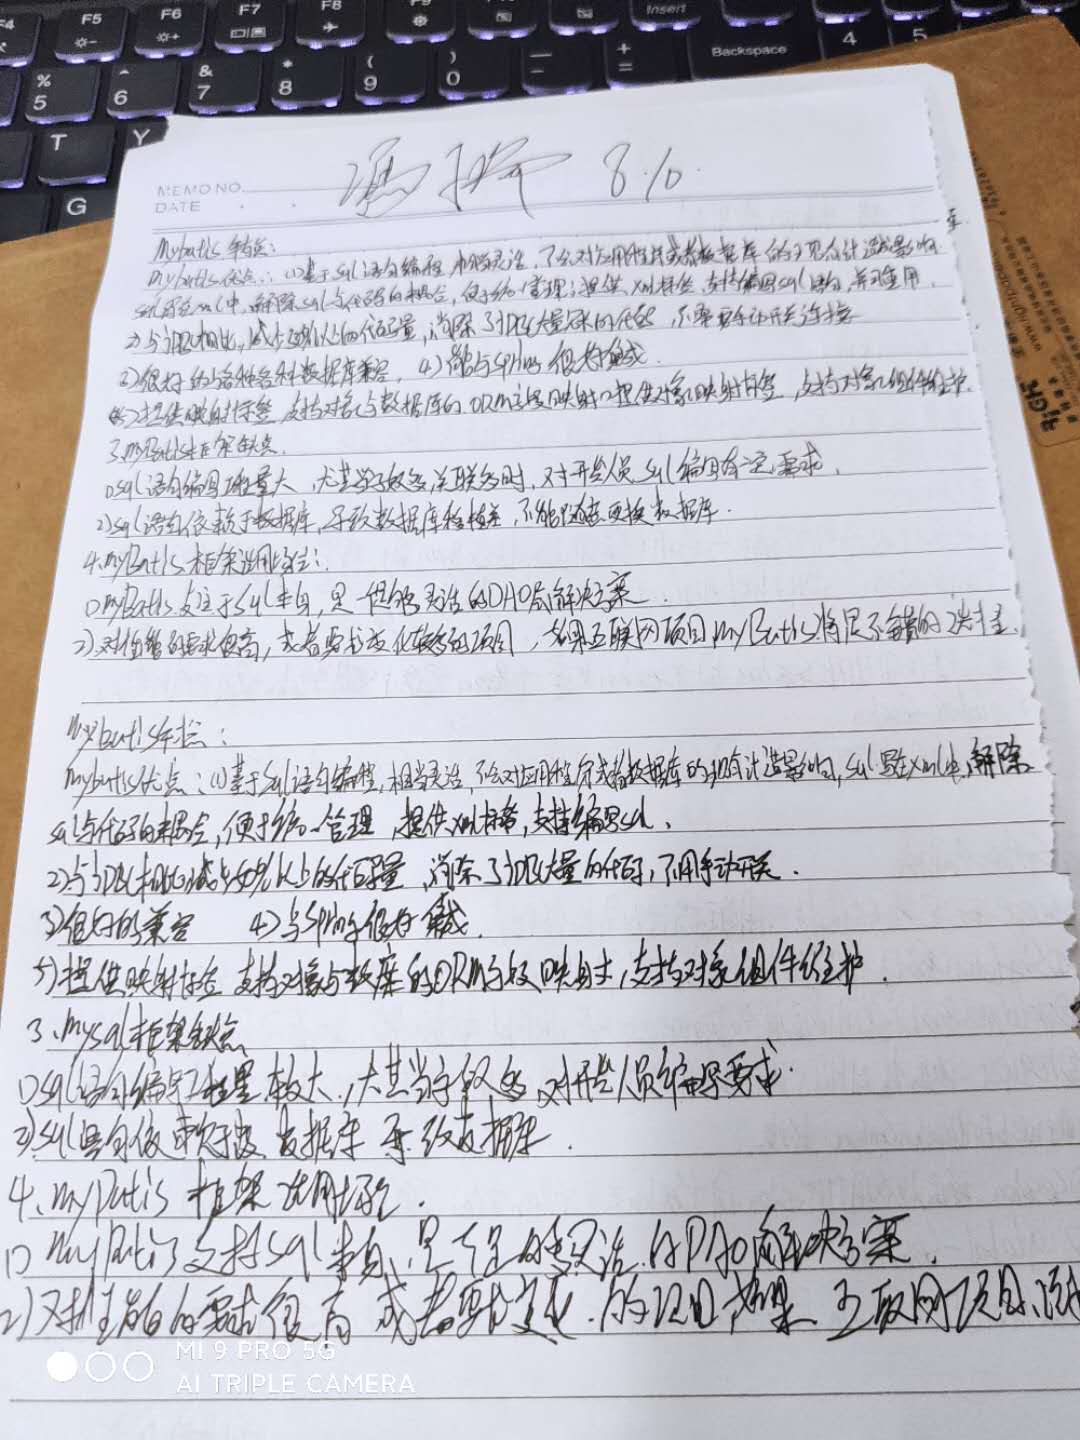 F5 F6 F7 F8 F9 F10 Insert
% 5 ^ 6 & 7 * 8 ( 9 ) 0 — - + = Backspace 4 5
T Y
G
MEMO NO. 8.10.
DATE
Mybatis特点:
Mybatis优点:(1)基于Sql语句编程 相当灵活,不会对应用程序或者数据库的现有设计造成影响
sql写在xml中,解除sql与代码的耦合,便于统一管理;提供xml标签,支持编写sql语句,并可重用.
2)与JDBC相比,减少50%以上的代码量,消除了JDBC大量冗余的代码,不需要手动开关连接
3)很好的与各种各样数据库兼容. 4)能与Spring很好集成.
5)提供映射标签,支持对象与数据库的ORM字段映射;提供对象映射标签,支持对象组件维护
3.MyBatis框架缺点.
1)sql语句编写工程量大,尤其当字段多,关联多时,对开发人员sql编写有一定要求.
2)sql语句依赖于数据库,导致数据库移植差,不能随意更换数据库.
4.MyBatis框架适用场合:
1)MyBatis专注于sql本身,是一个足够灵活的DAO层解决方案.
2)对性能的要求很高,或者要求变化较多的项目,如果互联网项目MyBatis将是不错的选择.
Mybatis特点:
Mybatis优点:(1)基于Sql语句编程,相当灵活,不会对应用程序或者数据库的现有设计造成影响,sql写在xml中,解除
sql与代码的耦合,便于统一管理,提供xml标签,支持编写sql.
2)与JDBC相比减少50%以上的代码量,消除了JDBC大量的代码,不用手动开关.
3)很好的兼容 4)与Spring很好集成.
5)提供映射标签 支持对象与数据库的ORM字段映射,支持对象组件维护.
3.Mysql框架缺点
1)sql语句编写工程量较大,尤其当字段多,对开发人员编写要求.
2)sql语句依赖于数据库 导致数据库.
4.MyBatis 框架适用场合.
1)MyBatis支持sql本身,是一个足够灵活的DAO层解决方案.
2)对性能的要求很高 或者要求变化的项目 如果 互联网项目,
MI 9 PRO 5G
AI TRIPLE CAMERA